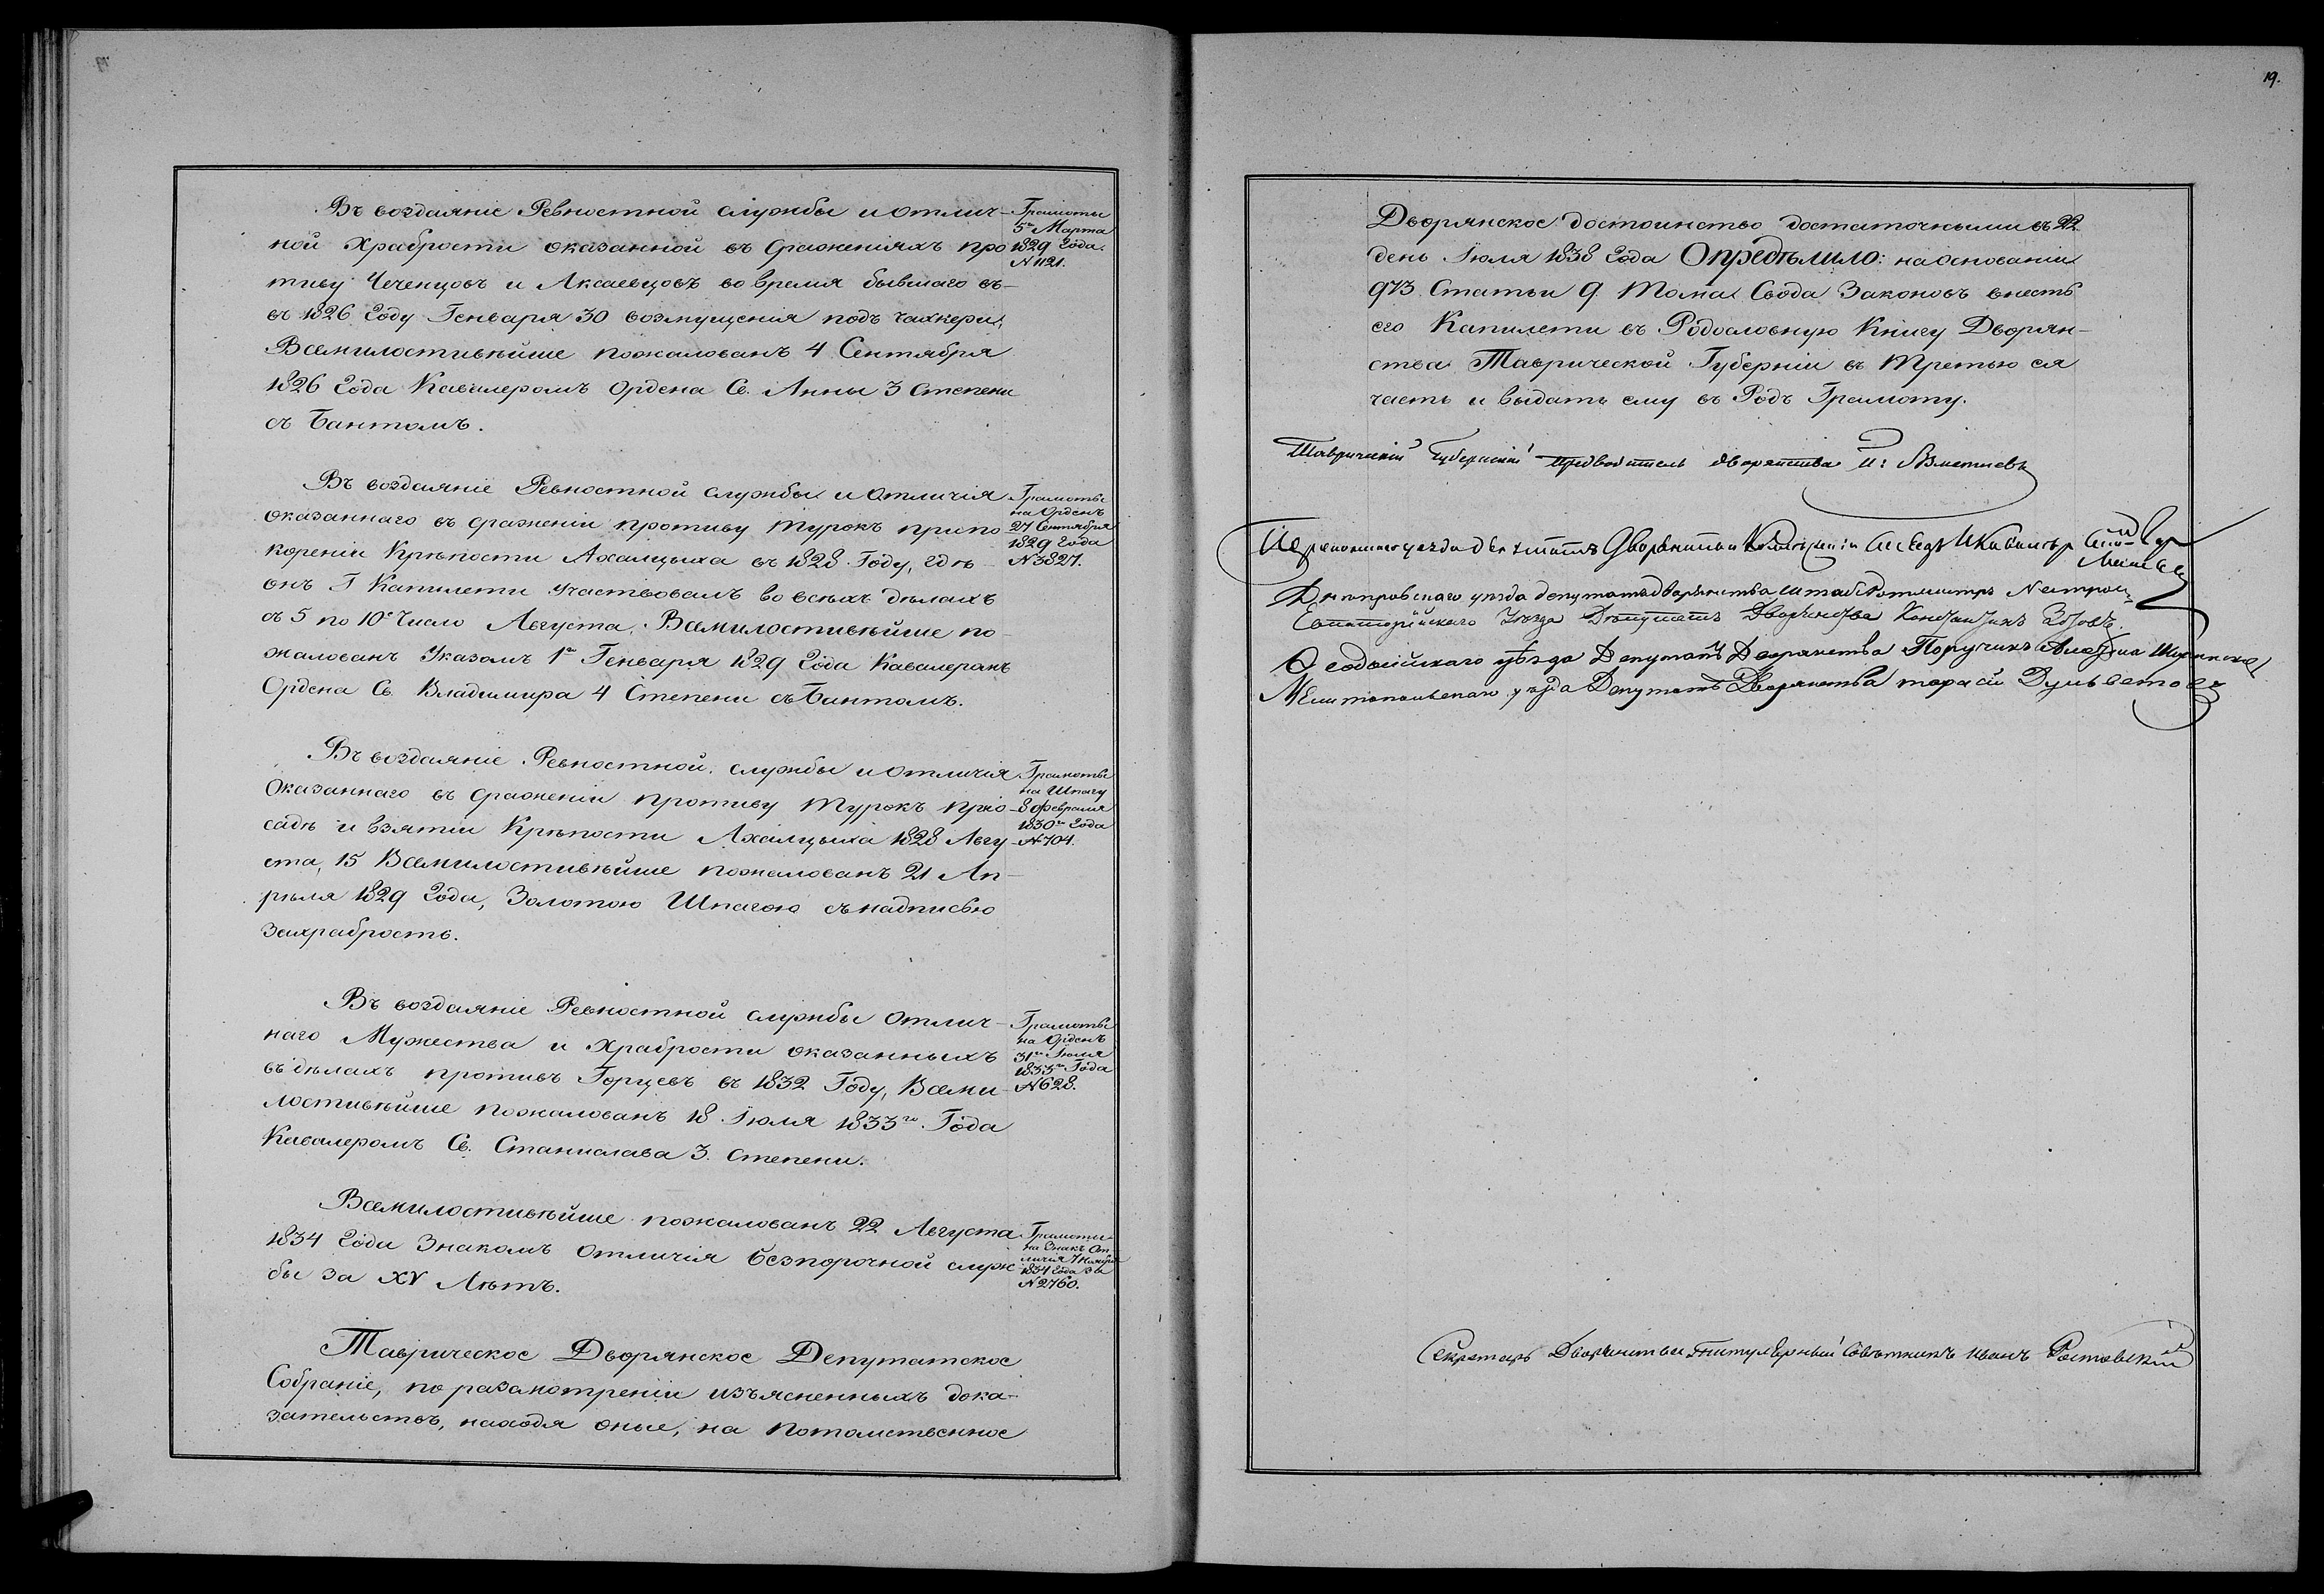 Въ воздаяніе Ревностной службы и отлич-
ной храбрости оказанной въ сраженіяхъ про
тиву Чеченцовъ и Аксаевцовъ во время бывшаго въ-
въ 1826 Году Генваря 30 возмущенія подъ
Всемилостивѣйше пожалованъ 4 Сентября
1826 Года Кавалеромъ Ордена Св. Анны 3 Степени
съ Бантомъ.
Грамоты
5го Марта
1829 Года.
N 1121.
Въ воздаяніе Ревностной службы и отличія
оказаннаго въ сраженіи противу Турокъ при по
кореніи Крѣпости Ахалцыха въ 1828 Году, гдѣ
онъ Г Капилети участвовалъ во всѣхъ дѣлахъ
съ 5 по 10е Число Августа, Всемилостивѣйше по-
жалованъ Указомъ 1го Генваря 1829 Года Кавалеромъ
Ордена Св. Владимира 4 Степени съ Бантомъ.
Грамоты
на Орденъ
27 Сентября
1829 Года
N 3827.
Въ воздаяніе Ревностной службы и отличія
Оказаннаго въ сраженіи противу Турокъ при о-
садѣ и взятіи Крѣпости Ахалцыха 1828 Авгу-
ста, 15 Всемилостивѣйше пожалованъ 21 Ап-
рѣля 1829 Года, Золотою Шпагою съ надписью
за храбрость.
Грамоты
на Шпагу
8 Февраля
1830го Года
N 704.
Въ воздаяніе Ревностной службы Отлич-
наго Мужества и Храбрости оказанныхъ
въ дѣлахъ противъ Горцевъ въ 1832 Году, Всеми-
лостивѣйше пожалованъ 18 Іюля 1833го Года
Кавалеромъ Св. Станислава 3. Степени.
Грамоты
на Орденъ
31го Іюля
1833го Года
N 628.
Всемилостивѣйше пожалованъ 22 Августа
1834 Года Знакомъ Отличія безпорочной служ
бы за XV Лѣтъ.
Грамоты
на Знакъ От
личія 7 Ноября
1834 Года за
N 2760.
Таврическое Дворянское Депутатское
Собраніе, по разсмотреніи изъясненныхъ дока-
зательствъ, находя оные, на потомственное
19.
Дворянское достоинство достаточными въ 22
день Іюля 1838 Года Опредѣлило: на основаніи
973 Статьи 9. Тома Свода Законовъ внесть
его Капилети въ Родословную Книгу Дворян-
ства Таврической Губерніи въ Третью ея
часть и выдать ему въ Родъ Грамоту.
Таврическій Губернскій предводитель дворянства
уезда Дворянства
Днѣпровскаго уѣзда депутатъ дворянства штабъ Ротмистръ
Евпаторійскаго Уѣзда Депутатъ Дворянства Константинъ Зотовъ.
Феодосійскаго уѣзда Депутатъ Дворянства Поручикъ
Мелитопольскаго уѣзда Депутатъ Дворянства
Секретарь Дворянства титулярный совѣтникъ Иванъ Ростовскій